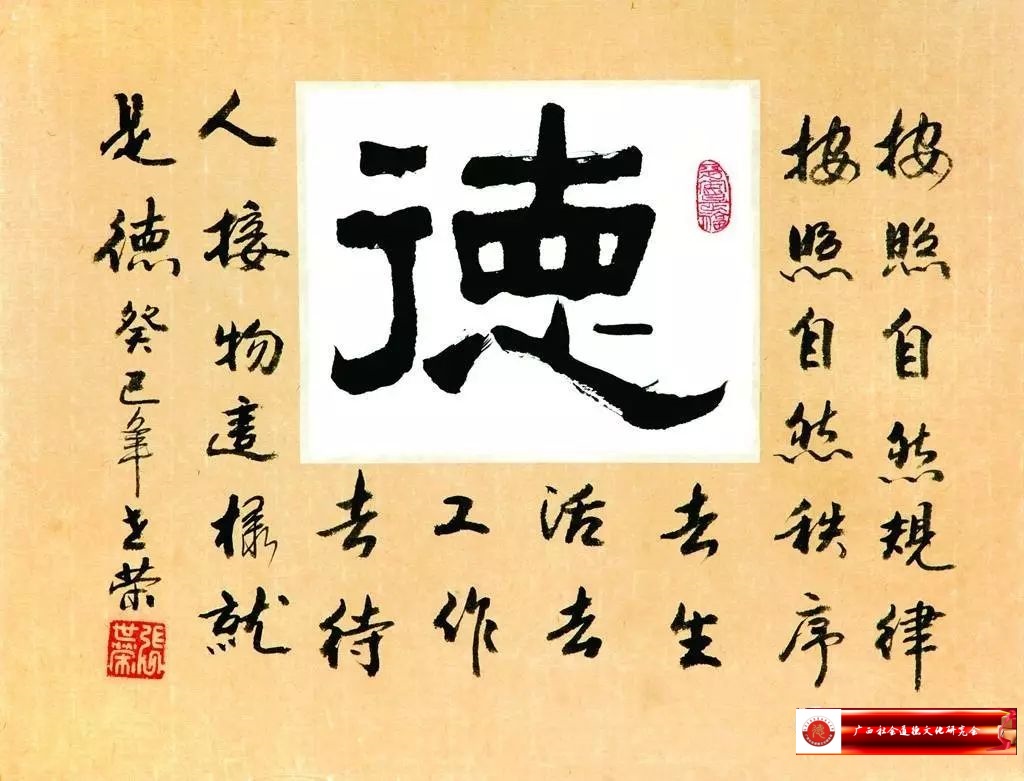 徳
按照自然規律
按照自然秩序
去生
活去
工作
去待
人接物這樣就
是徳 癸巳年世荣
張世榮
广西社会道德文化研究会